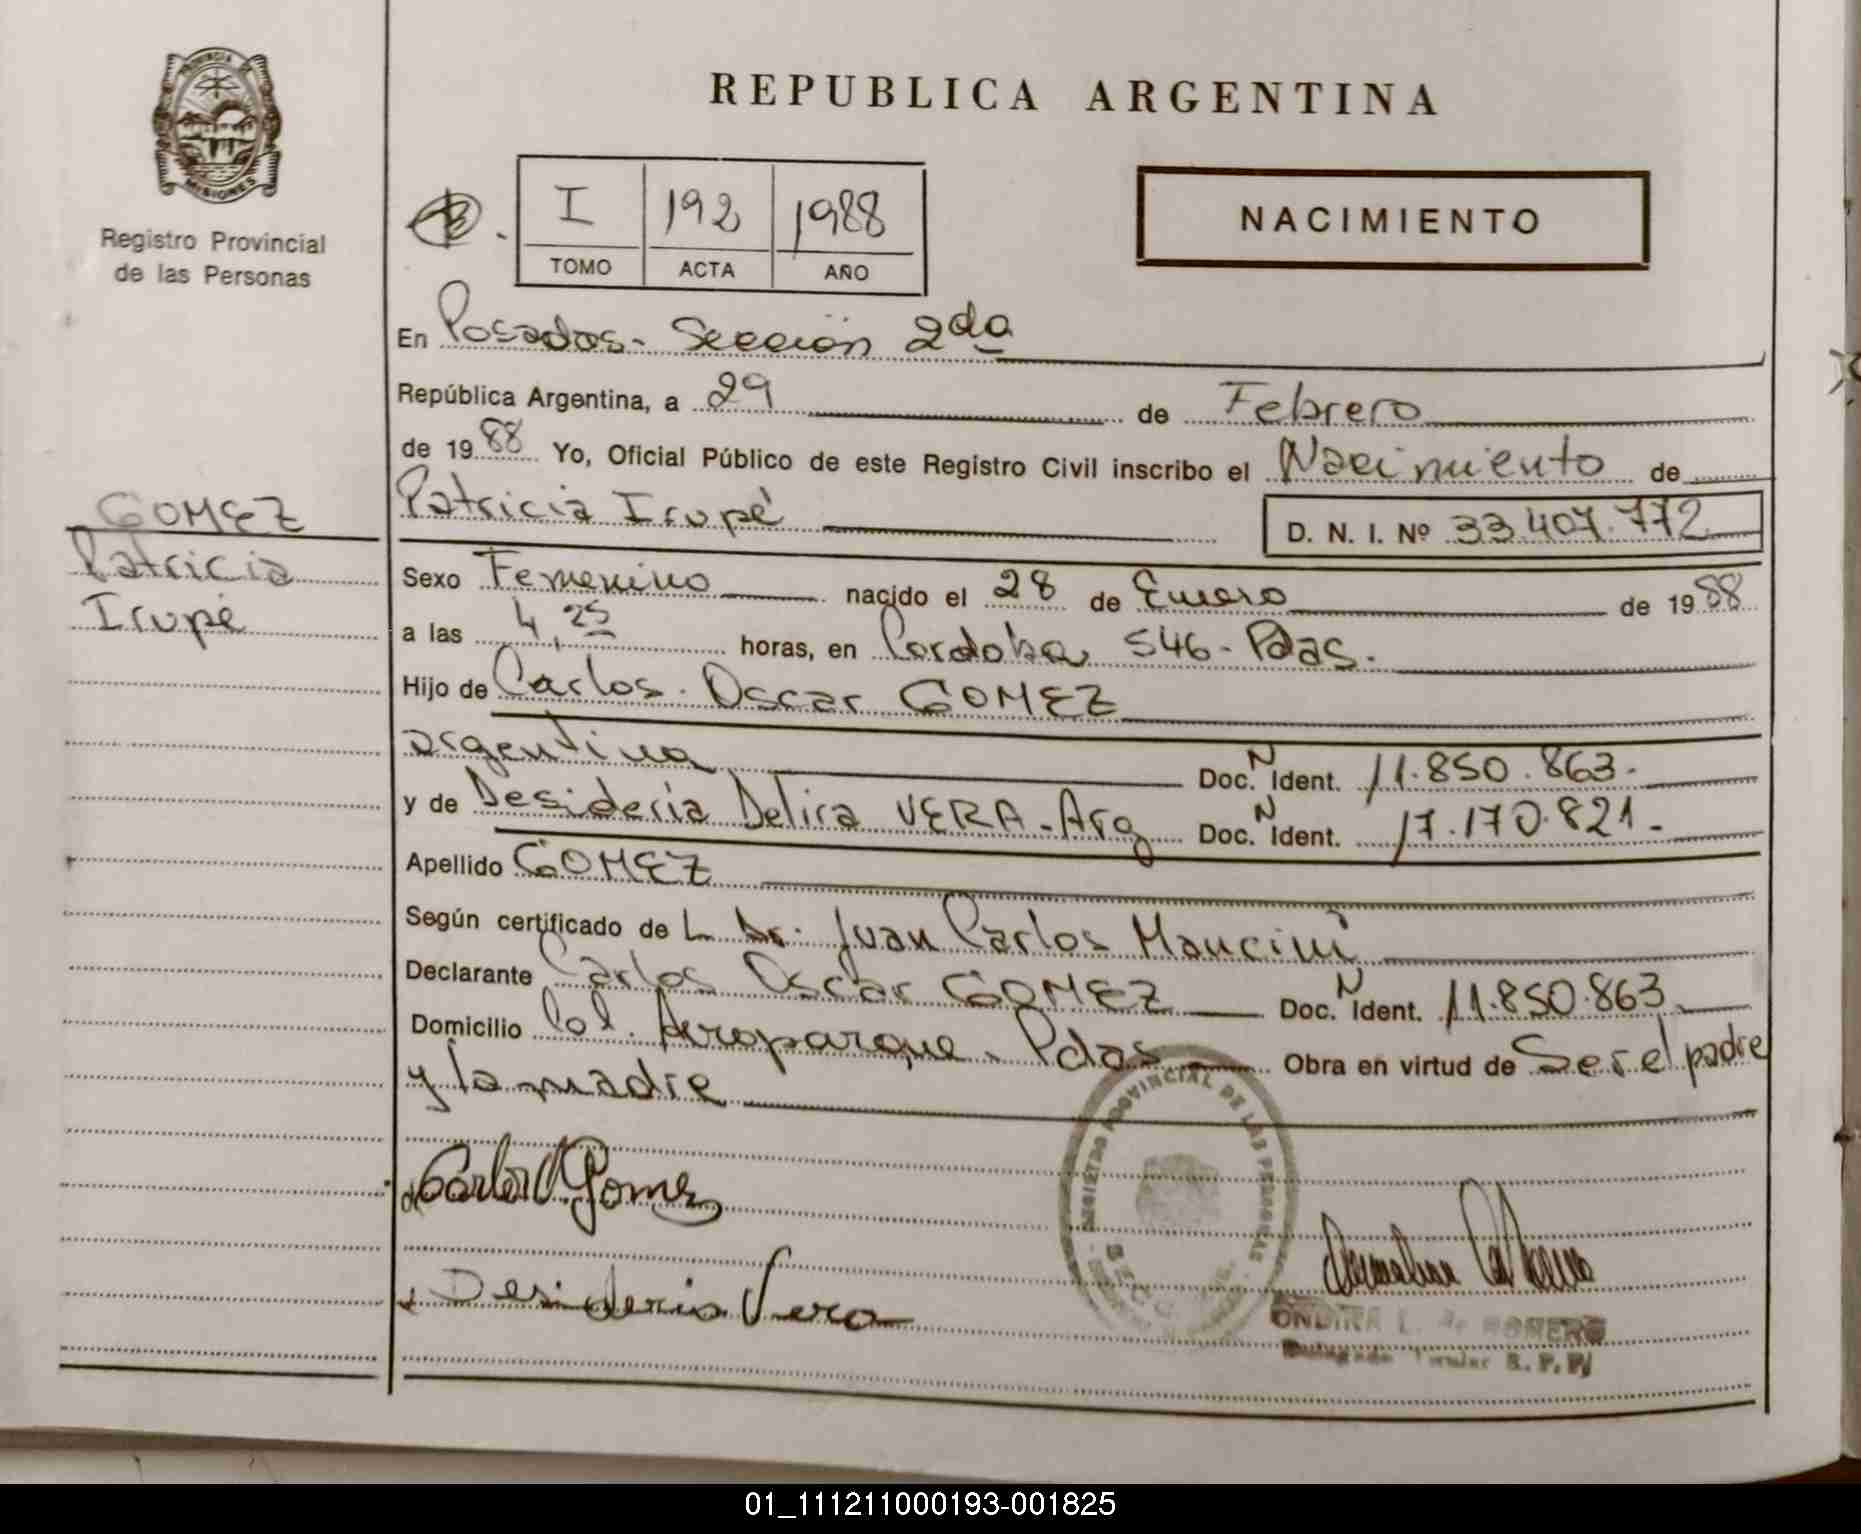 PROVINCIA DE
MISIONES
Registro Provincial
de las Personas
GOMEZ
Patricia
Irupé
REPUBLICA ARGENTINA
I 192 1988
TOMO ACTA AÑO
NACIMIENTO
En Posadas - Sección 2da
República Argentina, a 29 de Febrero
de 1988 Yo, Oficial Público de este Registro Civil inscribo el Nacimiento de
Patricia Irupé D. N. I. Nº 33.407.772
Sexo Femenino nacido el 28 de Enero de 1988
a las 4,25 horas, en Cordoba 546 - Pdas.
Hijo de Carlos Oscar GOMEZ
argentina Doc. N Ident. 11.850.863.
y de Desideria Delira VERA - Arg Doc. N Ident. 17.170.821.
Apellido GOMEZ
Según certificado de L Dr. Juan Carlos Mancini
Declarante Carlos Oscar GOMEZ Doc. N Ident. 11.850.863
Domicilio Col. Aeroparque - Pdas Obra en virtud de Ser el padre
y la madre
REGISTRO PROVINCIAL DE LAS PERSONAS
Carlos Gomez
Desideria Vera
ONDINA L. de ROMERO
Delegada Titular R. P. P.
01_111211000193-001825